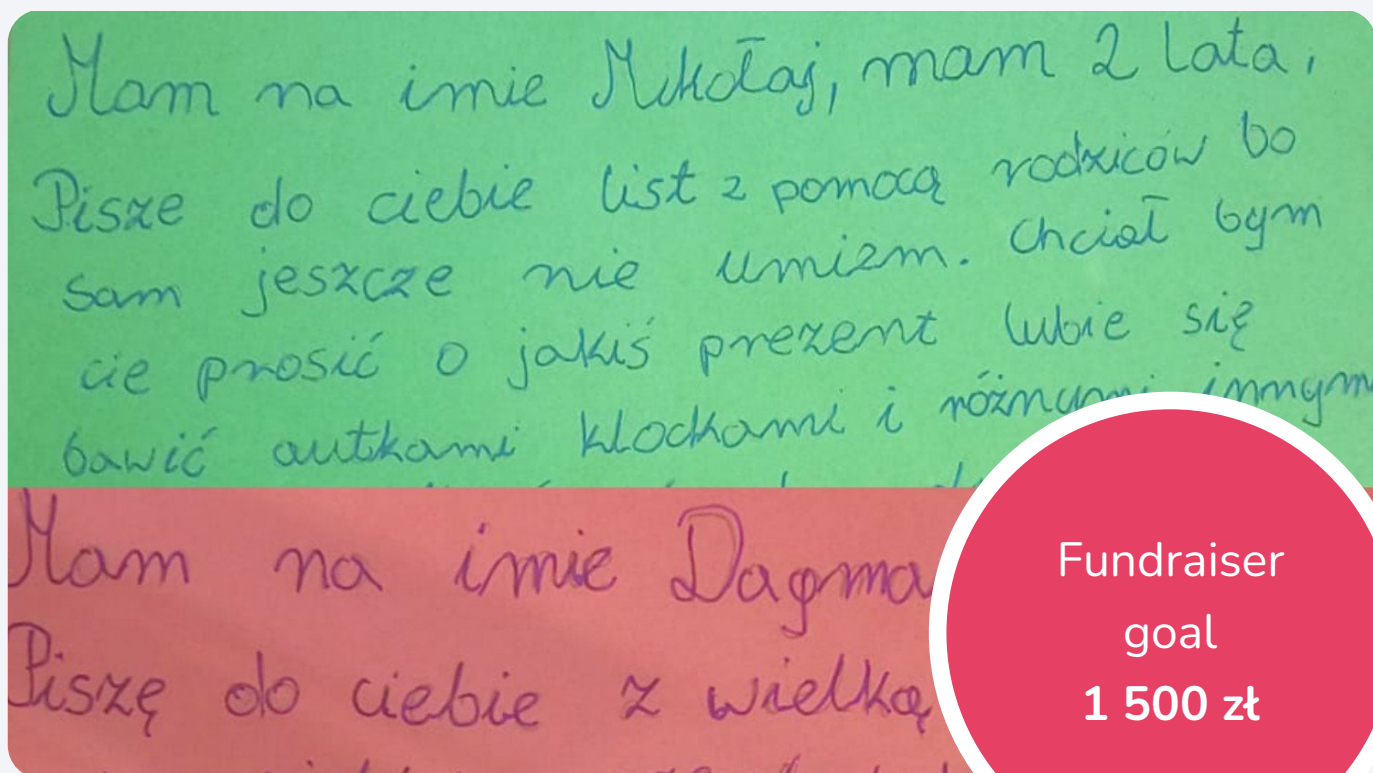 Mam na imie Mikołaj, mam 2 lata,
Pisze do ciebie list z pomocą rodziców bo
sam jeszcze nie umiem. Chciał bym
cie prosić o jakiś prezent lubie się
bawić autkami klockami i różnymi innym
Mam na imie Dagma
Piszę do ciebie z wielką
Fundraiser
goal
1 500 zł